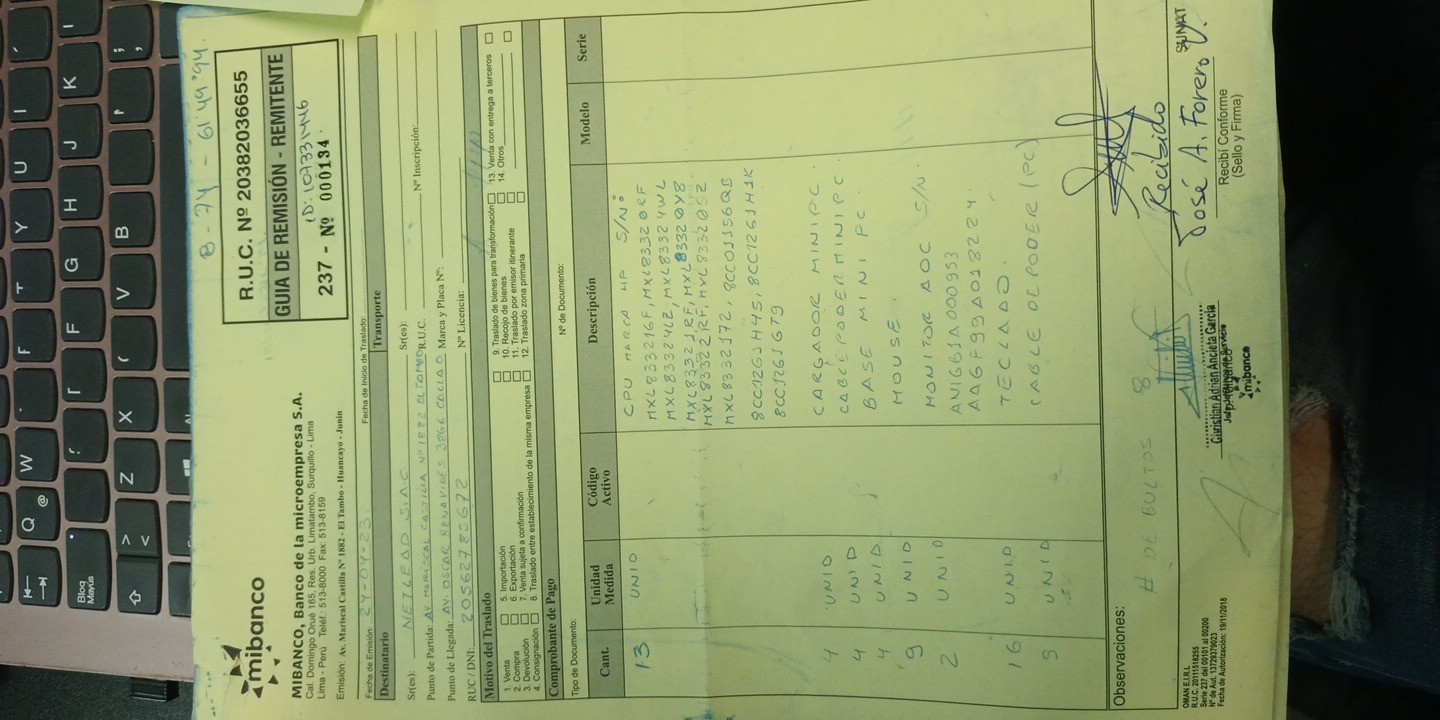 8-74-61'49"94
mibanco
R.U.C. Nº 20382036655
GUIA DE REMISIÓN - REMITENTE
ID: 107331446
237 - Nº 000134
MIBANCO, Banco de la microempresa S.A.
Cal. Domingo Orué 165, Res. Urb. Limatambo, Surquillo - Lima
Lima - Perú Teléf.: 513-8000 Fax: 513-8159
Emisión: Av. Mariscal Castilla Nº 1882 - El Tambo - Huancayo - Junín
Fecha de Emisión: 24-04-23 Fecha de Inicio de Traslado:
Destinatario Transporte
Sr(es): NETLEAD S.A.C Sr(es):
Punto de Partida: AV MARISCAL CASTILLA Nº 1882 EL TAMBO R.U.C. Nº Inscripción:
Punto de Llegada: AV. OSCAR BENAVIDES 3866 CALLAO Marca y Placa Nº:
RUC / DNI: 20562785672 Nº Licencia:
Motivo del Traslado
1. Venta 5. Importación 9. Traslado de bienes para transformación 13. Venta con entrega a terceros
2. Compra 6. Exportación 10. Recojo de bienes 14. Otros
3. Devolución 7. Venta sujeta a confirmación 11. Traslado por emisor itinerante
4. Consignación 8. Traslado entre establecimiento de la misma empresa 12. Traslado zona primaria
Comprobante de Pago
Tipo de Documento: Nº de Documento:
Cant. Unidad Medida Código Activo Descripción Modelo Serie
13 UNID CPU MARCA HP S/Nº
MXL833216F, MXL83320RF
MXL83324LZ, MXL83324WL
MXL83321RF, MXL83320Y8
MXL83322JRF, MXL833205Z
MXL8332172, 8CC01156QB
8CC1261H45, 8CC1261H1K
8CC1261GT9
4 UNID CARGADOR MINIPC.
4 UNID CABLE PODER MINIPC
4 UNID BASE MINI PC
9 UNID MOUSE
2 UNID MONITOR AOC S/N.
AN1GB1A000953
AAGF99A018224
16 UNID TECLADO.
9 UNID CABLE DE PODER (PC)
Observaciones:
# DE BULTOS 8
Recibido
José A. Forero V.
Christian Adrian Ancieta Garcia
mibanco
Recibí Conforme
(Sello y Firma)
SUNAT
OMAN E.I.R.L
R.U.C. 20111518255
Serie 237 del 00101 al 00200
Nº de Aut. 1729379023
Fecha de Autorización: 19/11/2018
Q W E R T Y U I
Bloq Mayús
F G H J K
Z X C V B